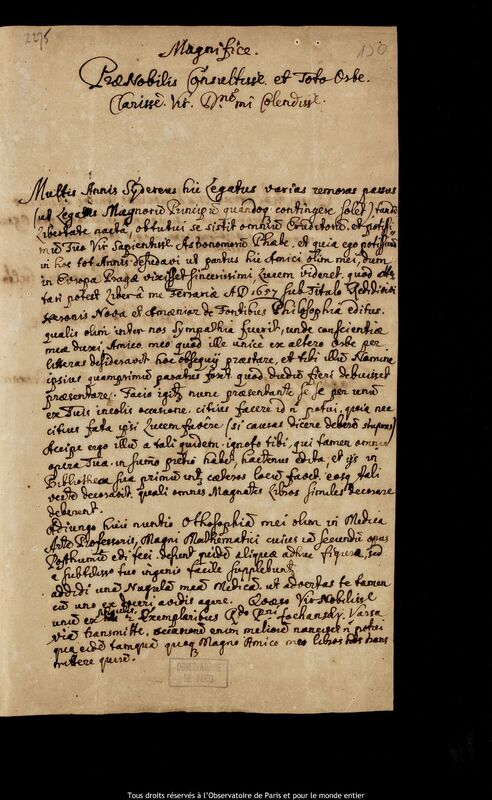 2275
150
Magnifice.
PræNobilis Consultisse. et Toto Orbe.
Clarisse. Vir. Dnē mi Colendisse.
Multis Annis Sydereus hic Legatus varias remoras passus
(ut Legatis Magnorū Principū quandoq contingere solet) tande
Libertate nacta, obtutui se sistit omniū Eruditorū, et potissi-
mū Tuo Vir Sapientisse. Astronomorū Phœbe, et quia ego potissimū
in hoc tot Annis desudavi ut partus hic Amici olim mei, dum
in Europa Pragæ vixisset sincerissimi Lucem videret, quod
tari potest Liber à me Ferrariæ AD 1677 sub Titulo
Nova et Amænior de Fontibus Philosophia editus.
qualis olim inter nos Sympathia fuerit, unde conscientiæ
meæ duxi, Amico meo quod ille unice ex altero Orbe per
litteras desideravit hoc obsequij præstare, et tibi illū Nomine
ipsius quamprimū paratus foret quod dudū fieri debuisset
præsentare. Facio igitr nunc præsentante se se per unū
ex Tuis incolis occasione. citius facere id n potui, quia nec
citius fata ipsi Lucem favere (si causas dicere deberē stuperes)
Accipe ergo illū à tali quidem ignoto tibi, qui tamen omnia
opera Tua in sumo pretio habet, hactenus edita, et ijs in
Bibliotheca sua primū intr cæteros locū facit. eosq tali
veste decoravit, quali omnes Magnates Libros similes decorare
deberent.
Adiungo huic nuntio Othosophiā mei olim in Medica
Arte Professoris, Magni Mathematici cuius iā secundū opus
Posthumū edi feci. desunt quidē aliquæ adhuc figuræ, sed
a subtilisso tuo ingenio facile supplebuntr
addidi unā Nugulā meā Medicā, ut advertas te tamen
cū uno ex doceri avidis agere. Quæso Vir Nobilisse
unū ex singulis Exemplaribus Rdo Pri Kochansky. Varsa
viā transmitte, occasionē enim meliorē nancisci n potui
qua eidē tamquā quoq Magno Amico meo libros hos trans
mittere quirē.
OBSERVATOIRE
DE PARIS
Tous droits réservés à l'Observatoire de Paris et pour le monde entier